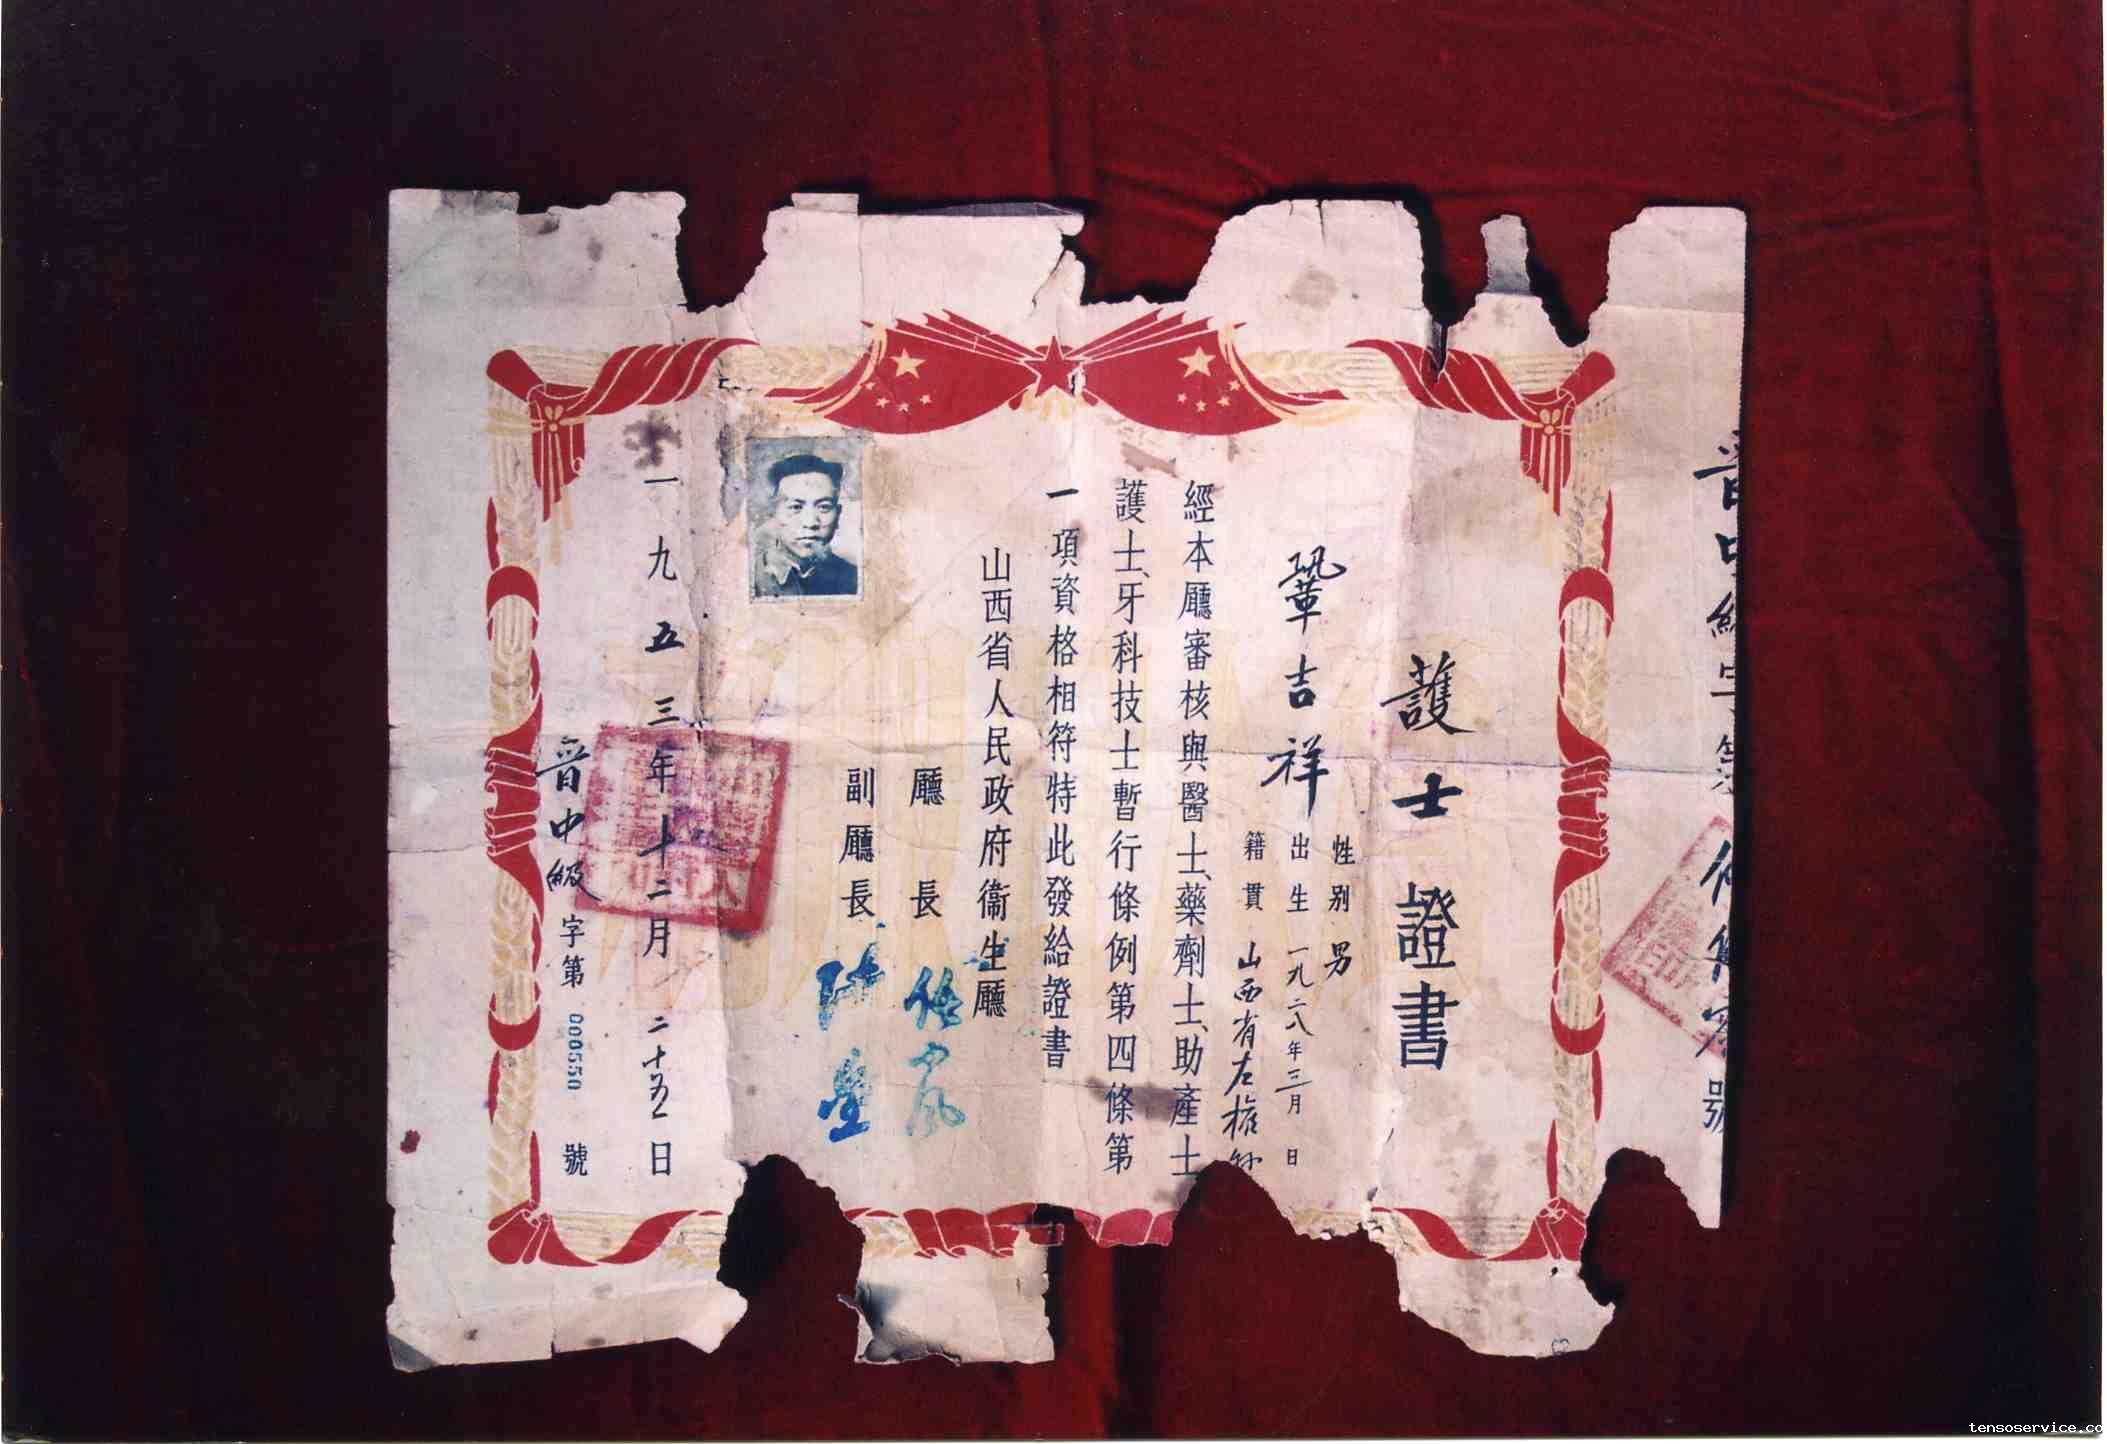 護士證書
鞏吉祥
性别 男
出生 一九二八年三月 日
籍貫 山西省左權
經本廳審核與醫士、藥劑士、助產士
護士、牙科技士暫行條例第四條第
一項資格相符特此發給證書
山西省人民政府衞生廳
廳長
副廳長
一九五三年十二月二十五日
晋中級字第 000550 號
號
tensoservice.co